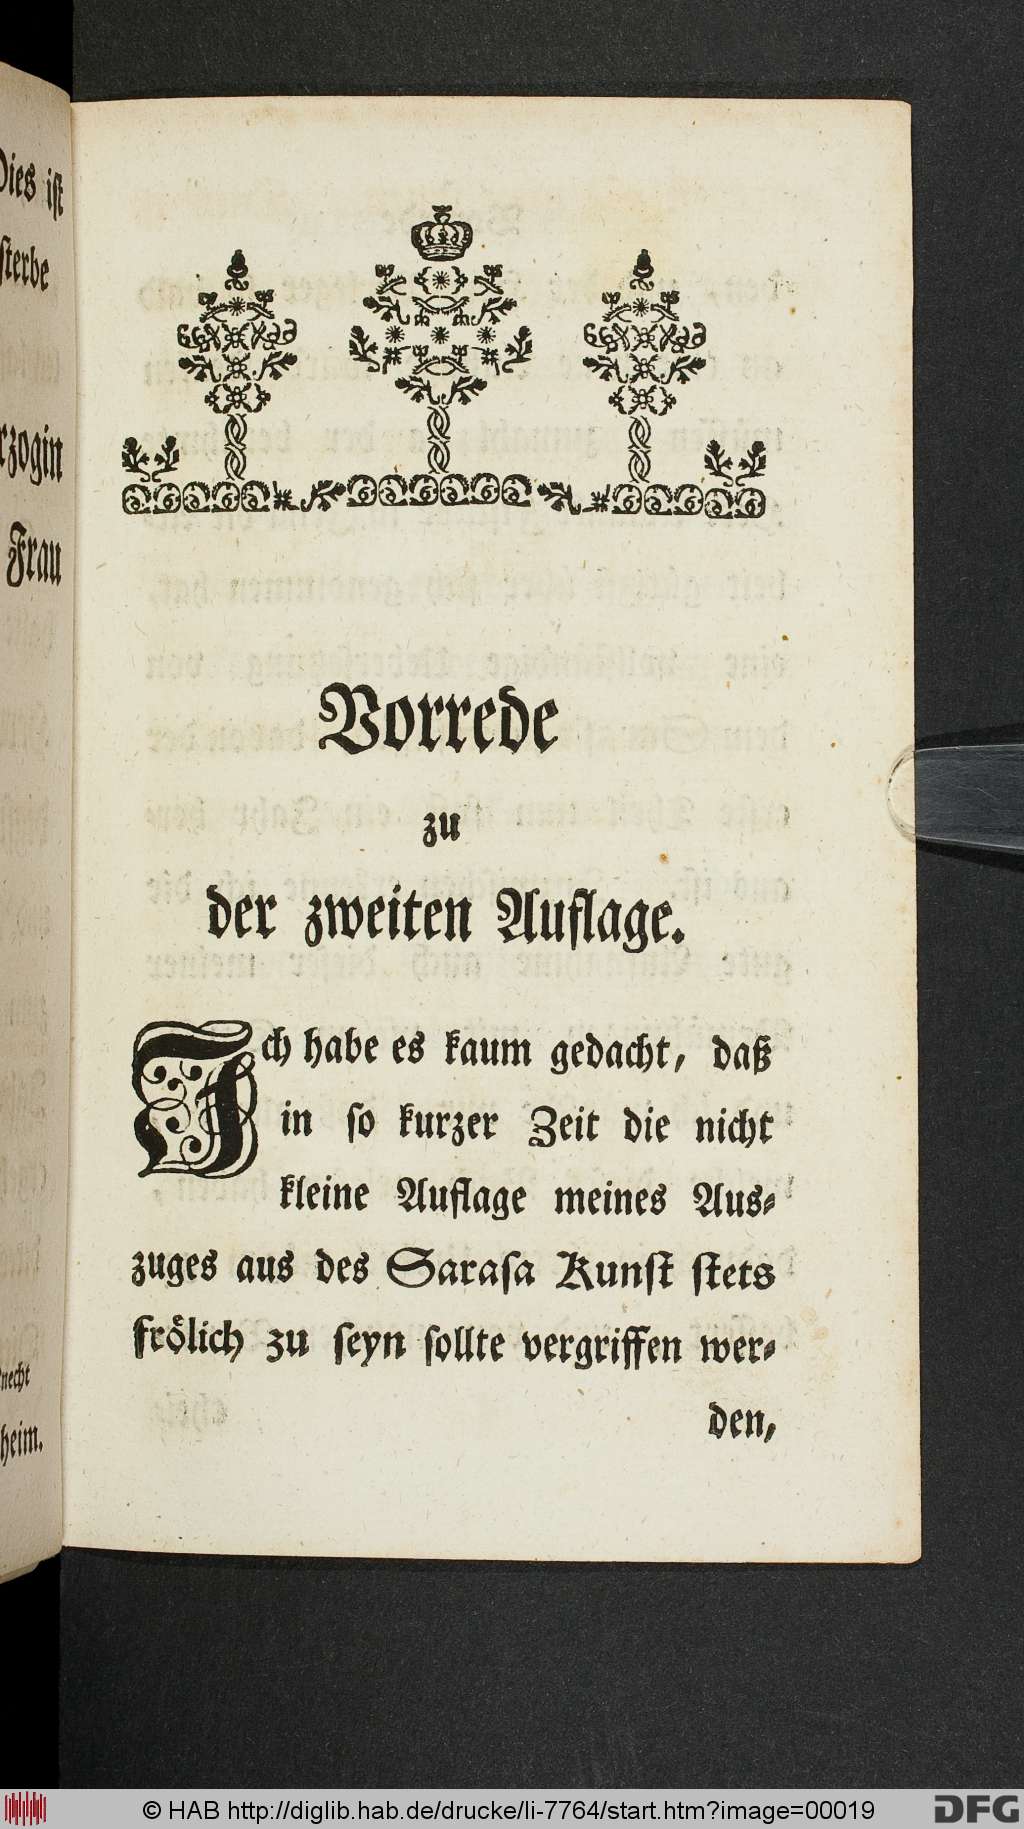 Dies ist
sterbe
rzogin
Frau
necht
heim.
Vorrede
zu
der zweiten Auflage.
Ich habe es kaum gedacht, daß
in so kurzer Zeit die nicht
kleine Auflage meines Aus⸗
zuges aus des Sarasa Kunst stets
froͤlich zu seyn sollte vergriffen wer⸗
den,
© HAB http://diglib.hab.de/drucke/li-7764/start.htm?image=00019
DFG